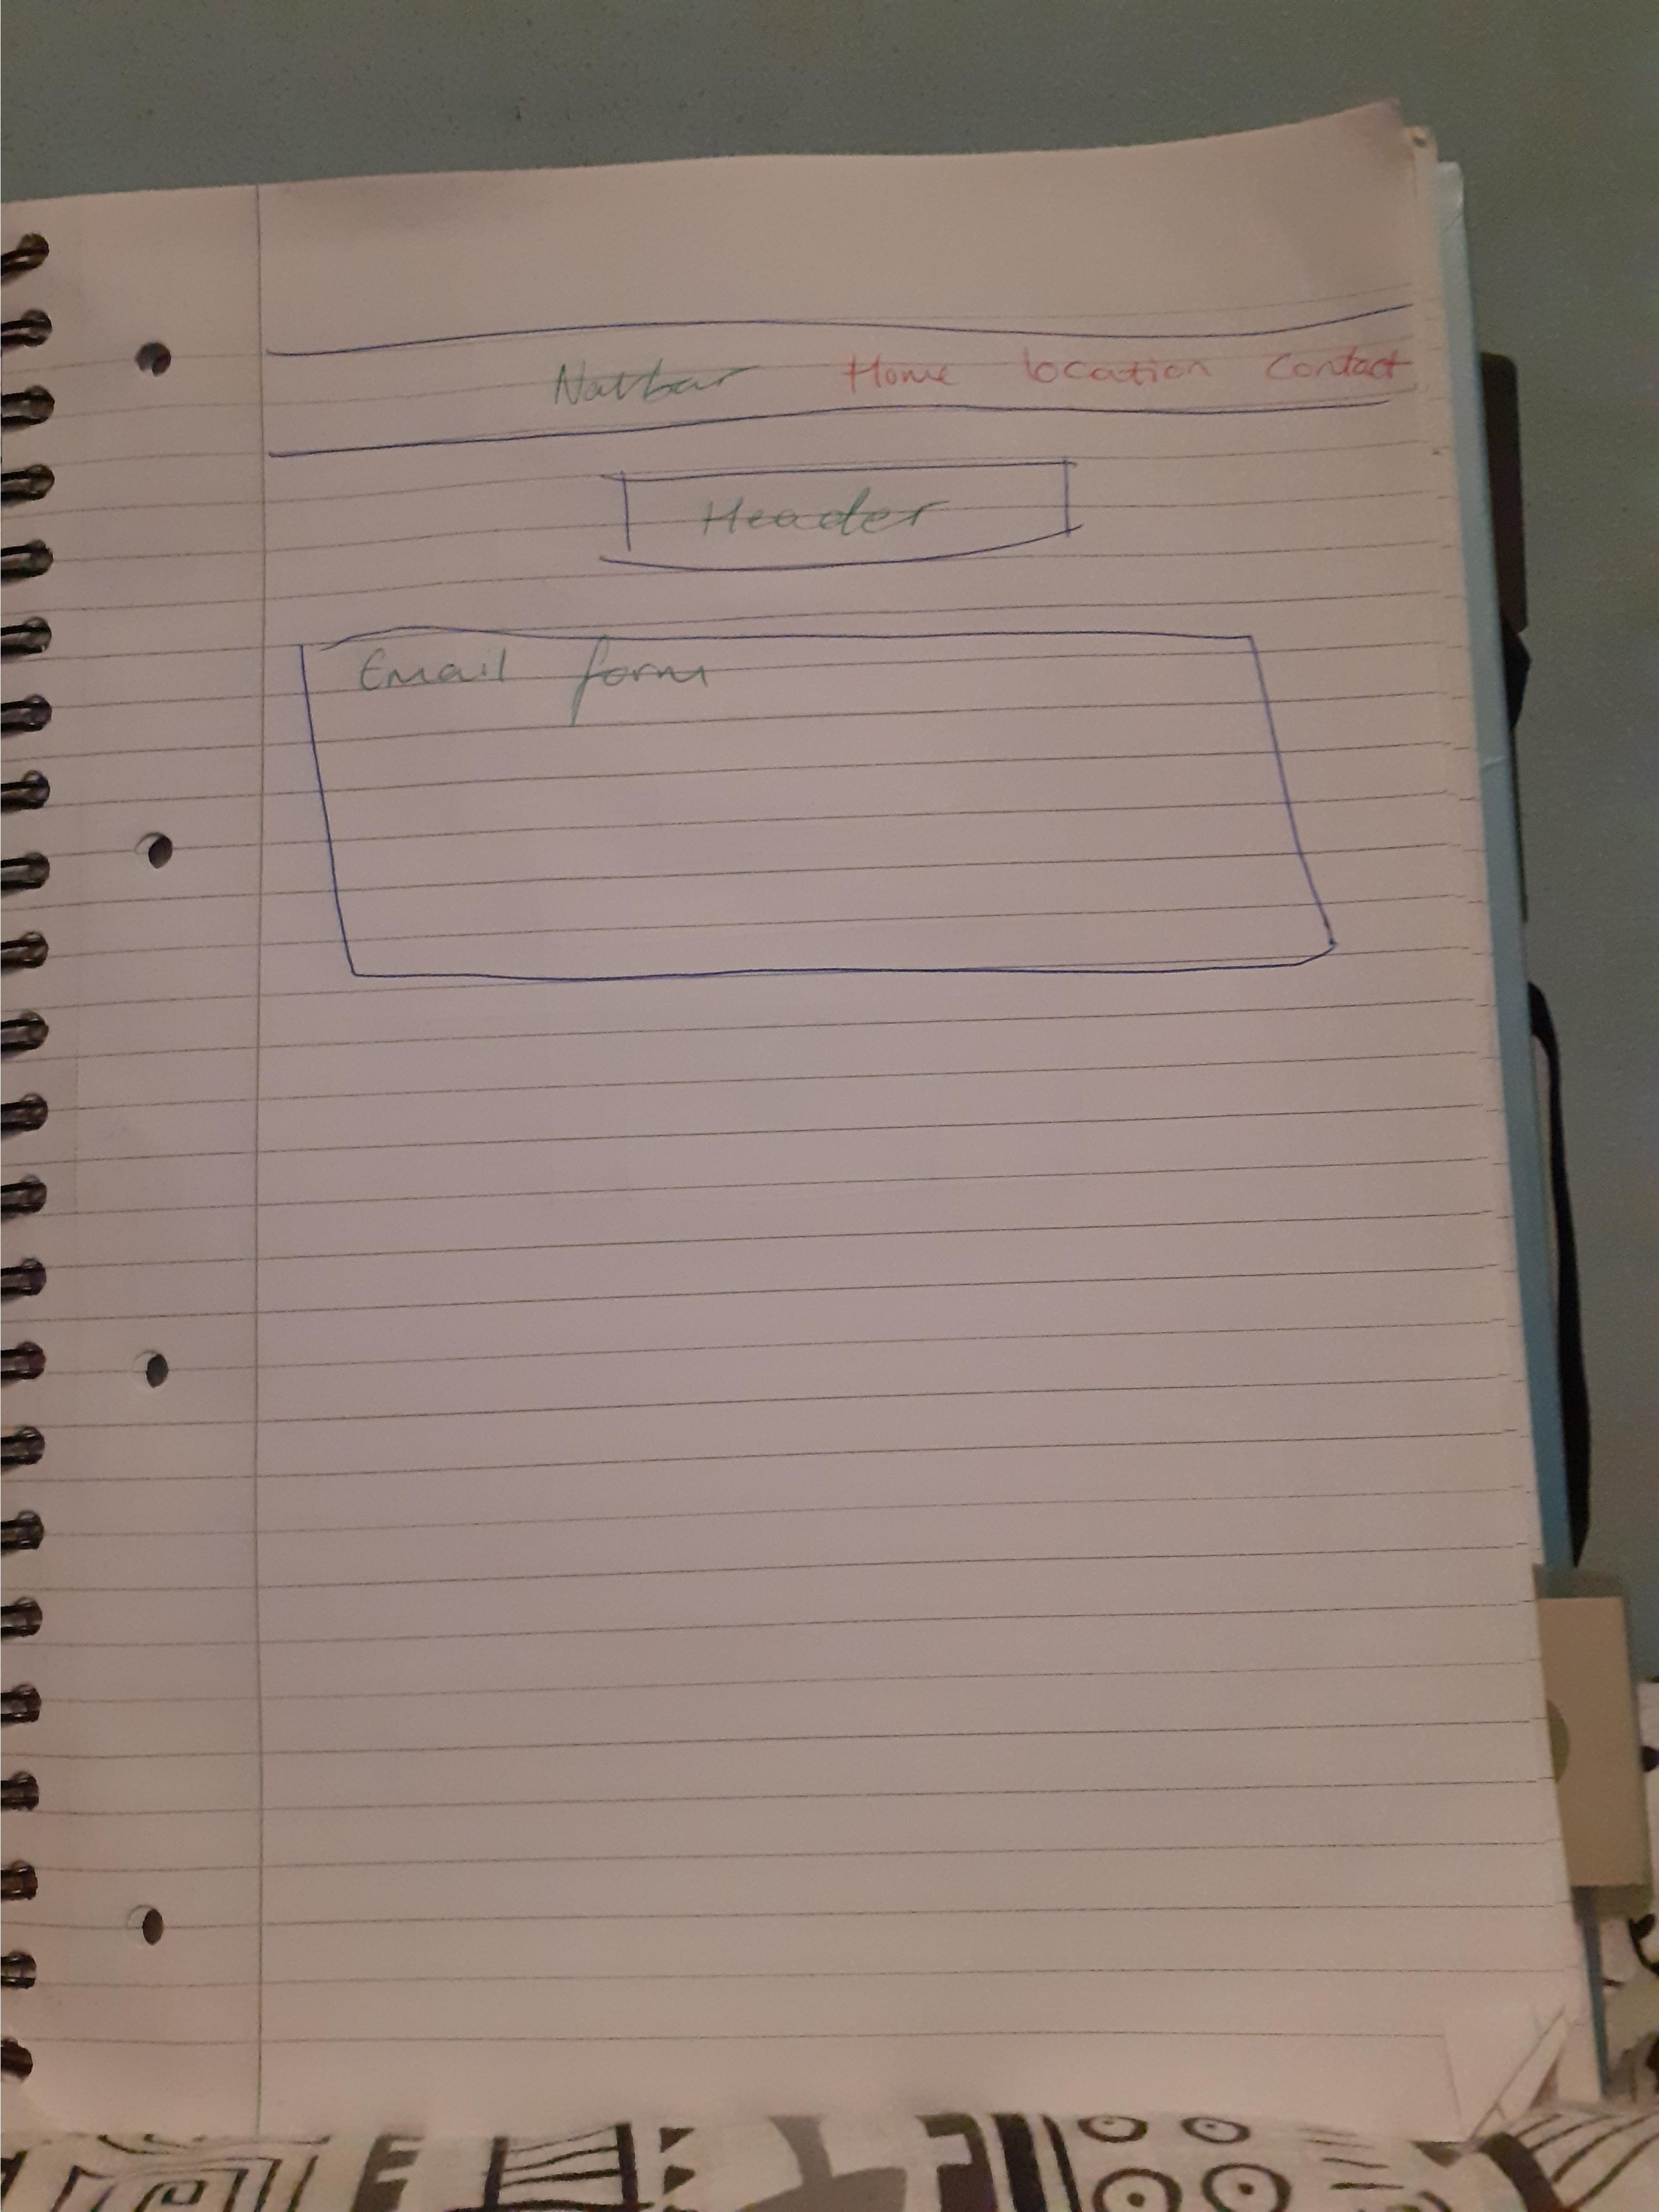 Navbar Home location Contact
Header
Email form